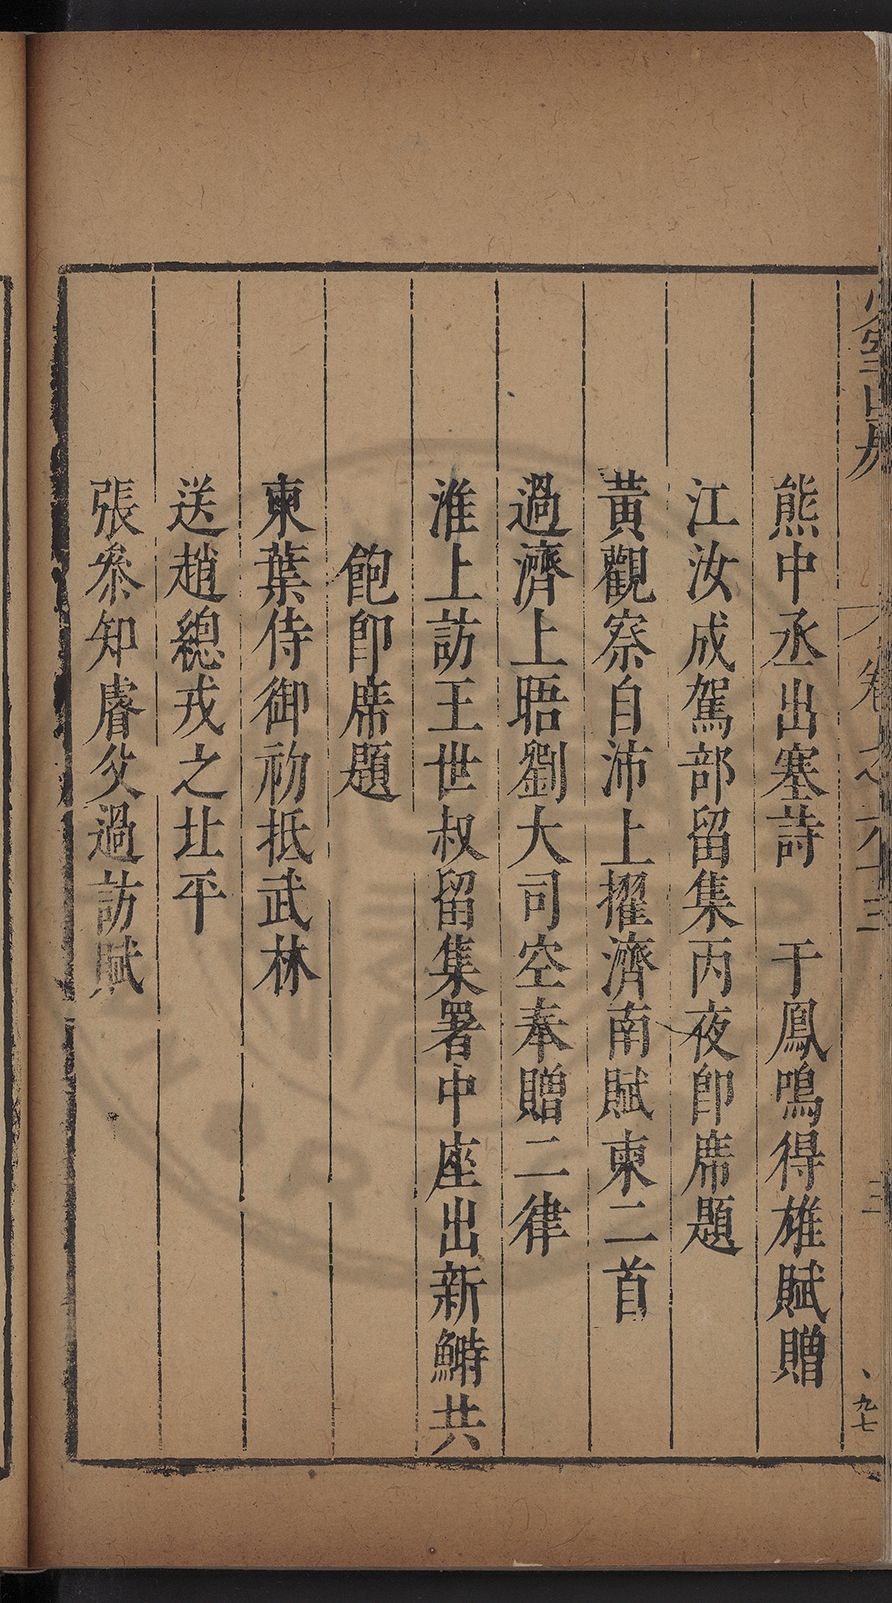 卷之六十三
三
九七
熊中丞出塞詩　于鳳鳴得雄賦贈
江汝成駕部留集丙夜卽席題
黃觀察自沛上擢濟南賦柬二首
過濟上晤劉大司空奉贈二律
淮上訪王世叔留集署中座出新鰣共
飽卽席題
柬葉侍御初抵武林
送趙總戎之北平
張叅知睿父過訪賦